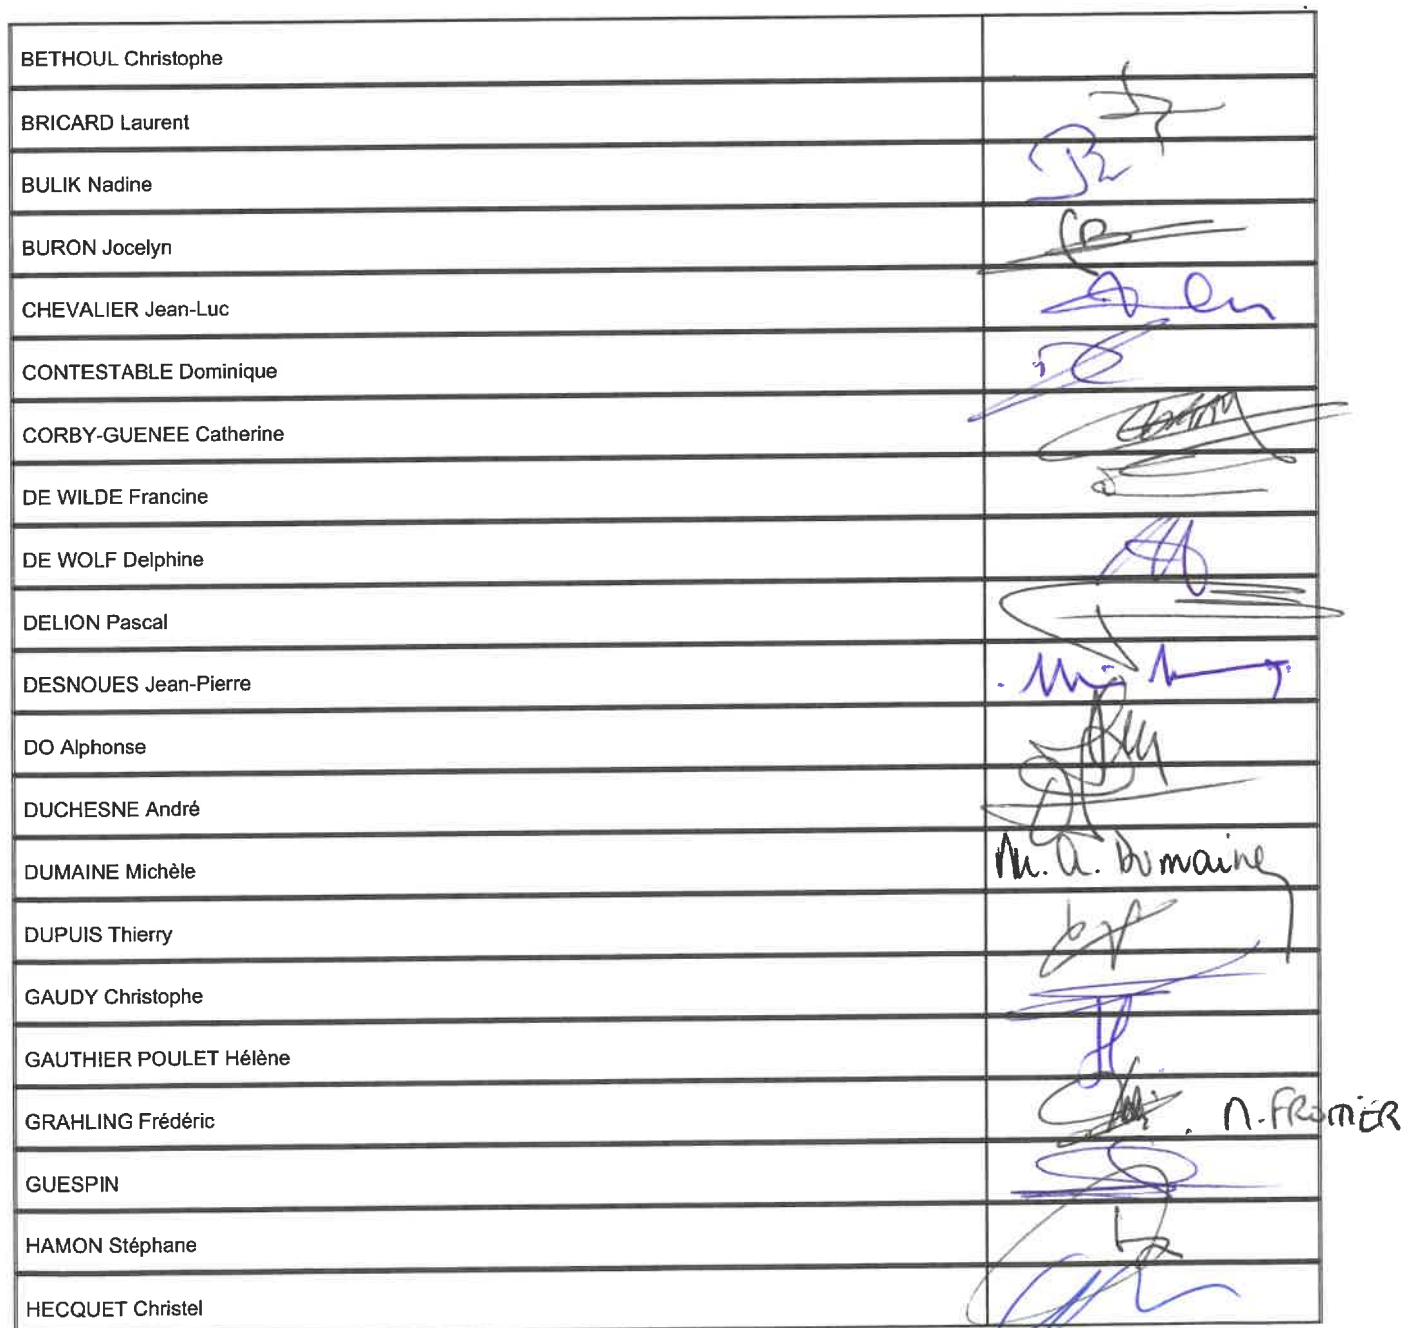 BETHOUL Christophe
BRICARD Laurent
BULIK Nadine
BURON Jocelyn
CHEVALIER Jean-Luc
CONTESTABLE Dominique
CORBY-GUENEE Catherine
DE WILDE Francine
DE WOLF Delphine
DELION Pascal
DESNOUES Jean-Pierre
DO Alphonse
DUCHESNE André
DUMAINE Michèle M. A. Dumaine
DUPUIS Thierry
GAUDY Christophe
GAUTHIER POULET Hélène
GRAHLING Frédéric
GUESPIN
HAMON Stéphane
HECQUET Christel